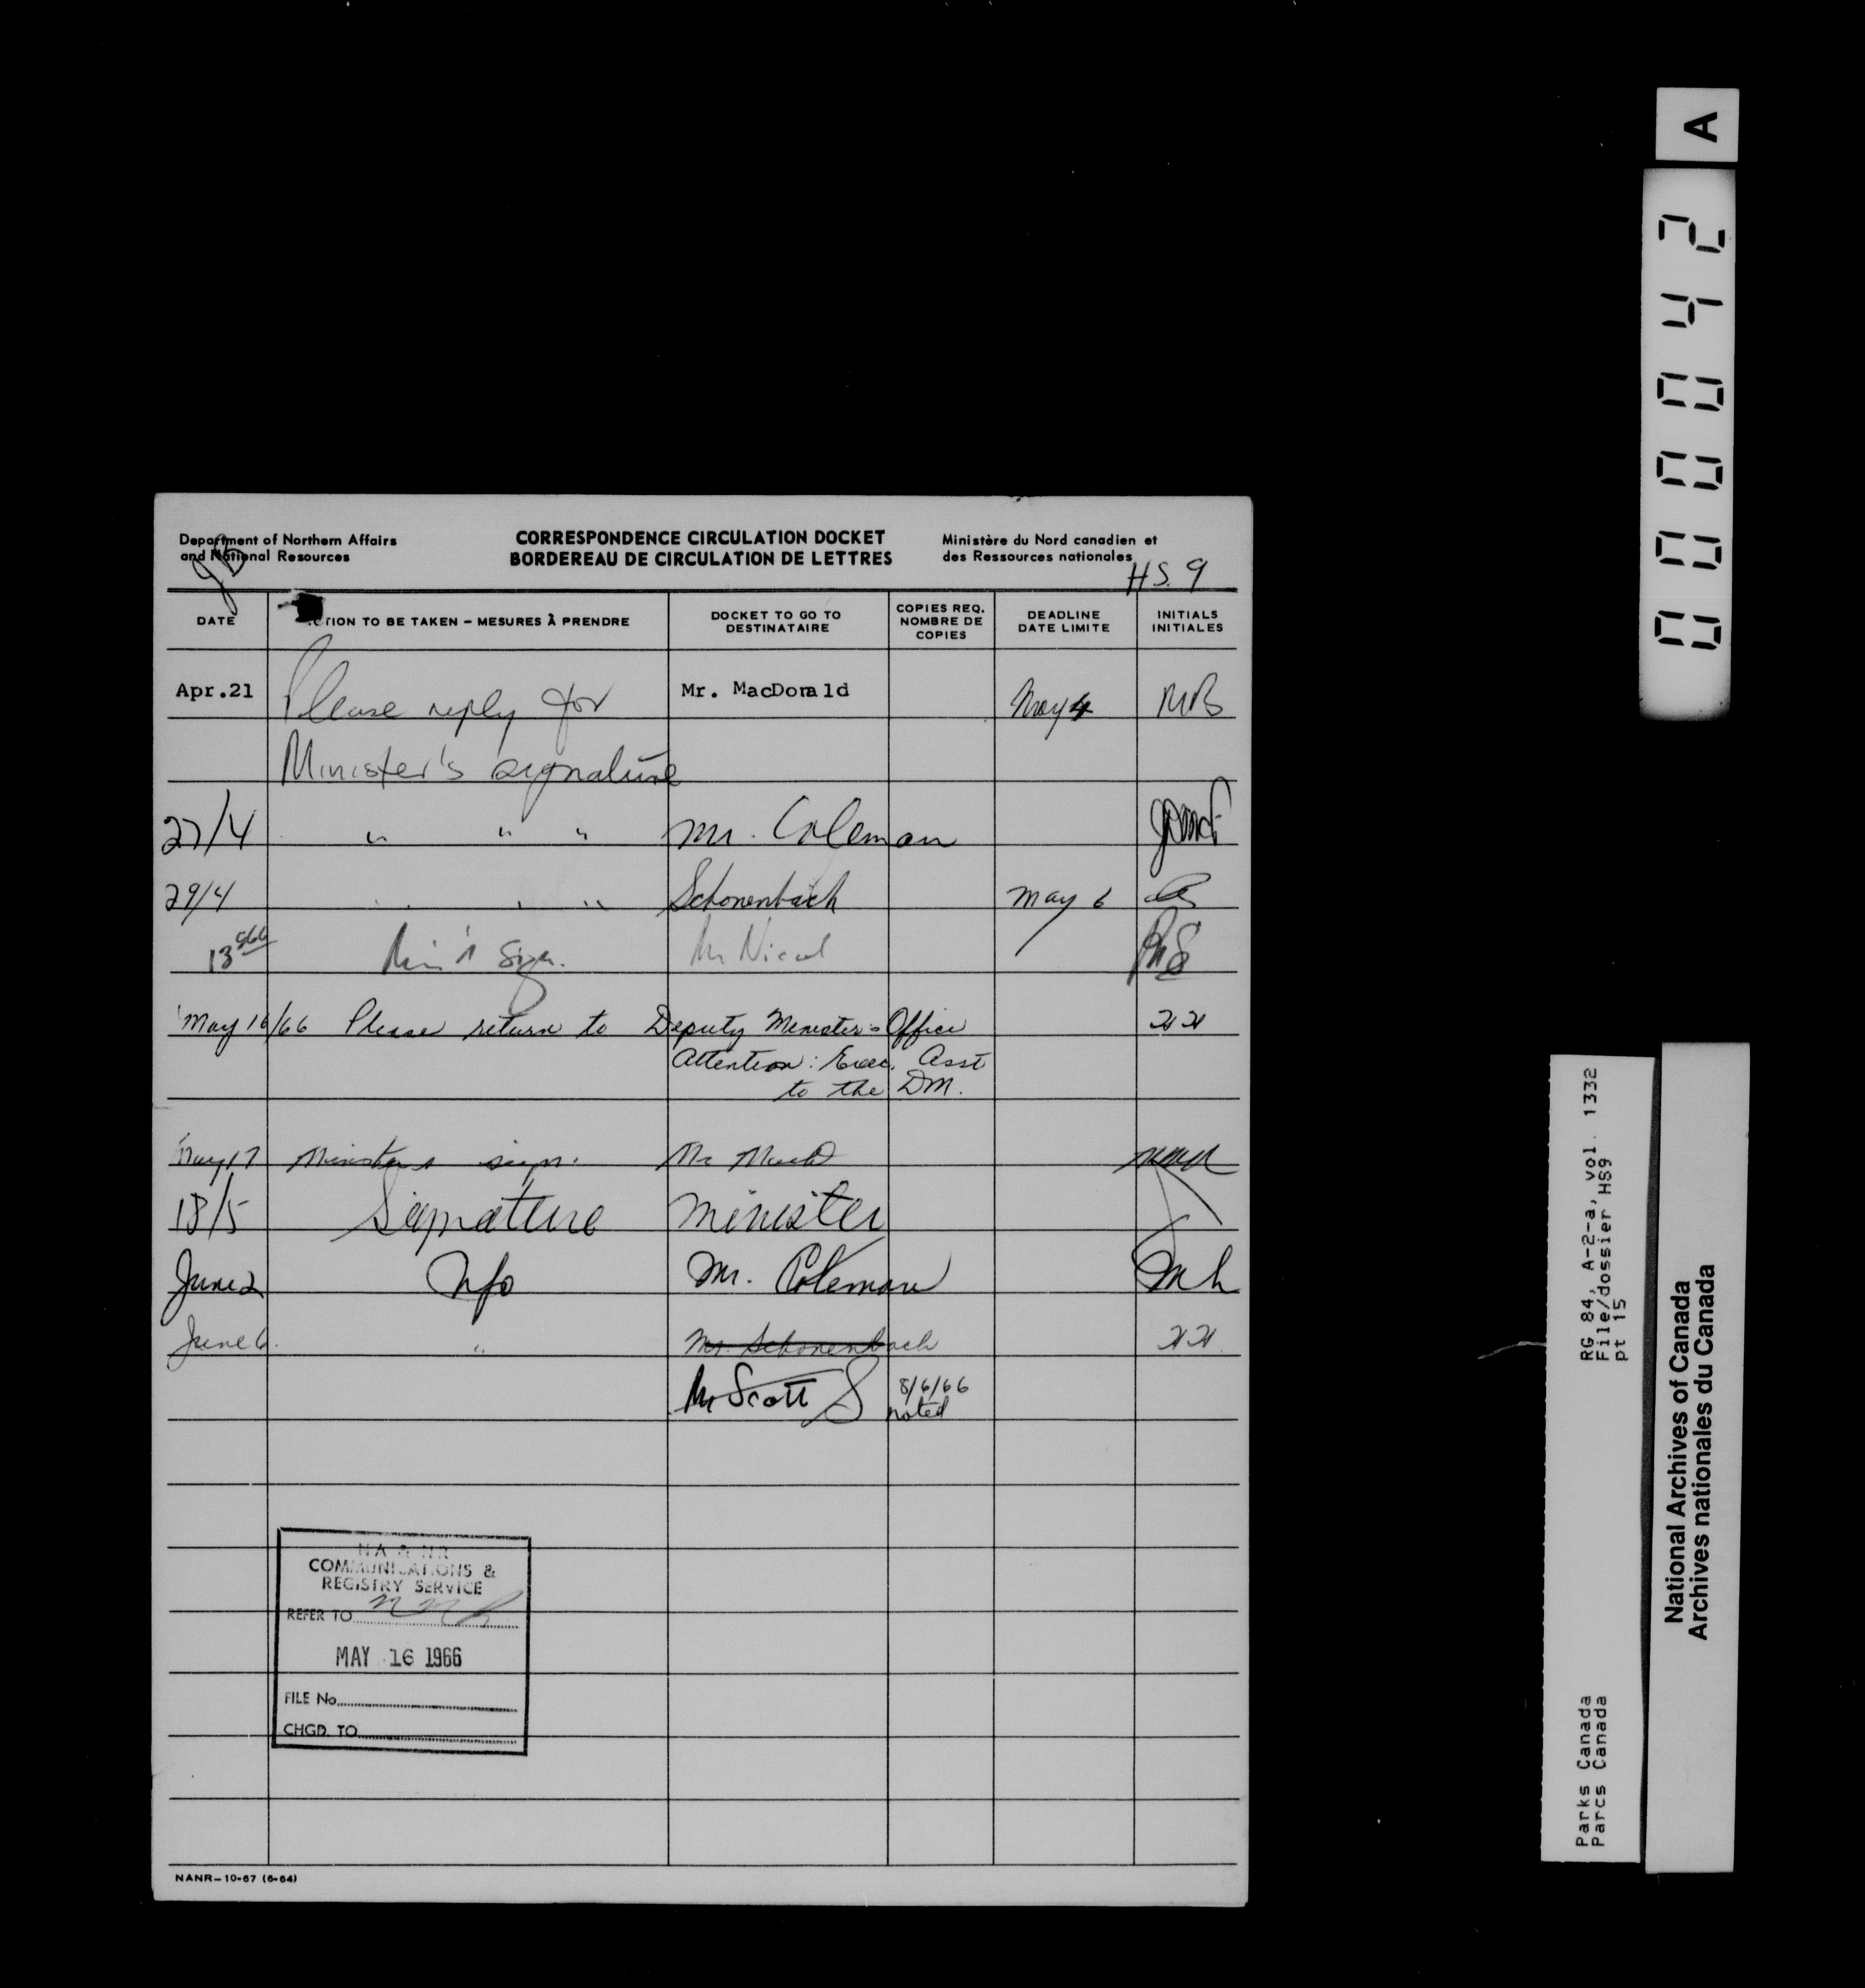 Department of Northern Affairs
and National Resources
CORRESPONDENCE CIRCULATION DOCKET
BORDEREAU DE CIRCULATION DE LETTRES
Ministère du Nord canadien et
des Ressources nationales
HS.9
DATE
TION TO BE TAKEN – MESURES À PRENDRE
DOCKET TO GO TO
DESTINATAIRE
COPIES REQ.
NOMBRE DE
COPIES
DEADLINE
DATE LIMITE
INITIALS
INITIALES
Apr.21 Please reply for Mr. MacDonald May 4
Minister's signature
27/4 " " " Mr. Coleman
29/4 " " Schonenbach May 6
13 Min's Sign. Mr Nicol
May 16/66 Please return to Deputy Minister's Office
Attention: Exec. Asst
to the DM.
May 17 Ministers sign. Mr
18/5 Signature Minister
June 2 Info Mr. Coleman
June 6 " Mr. Schonenbach
Mr Scott S 8/6/66
noted
NA & NR
COMMUNICATIONS &
REGISTRY SERVICE
REFER TO
MAY 16 1966
FILE No.
CHGD. TO
NANR–10-67 (6-64)
A
000042
RG 84, A-2-a, vol. 1332
File/dossier HS9
pt 15
Parks Canada
Parcs Canada
National Archives of Canada
Archives nationales du Canada